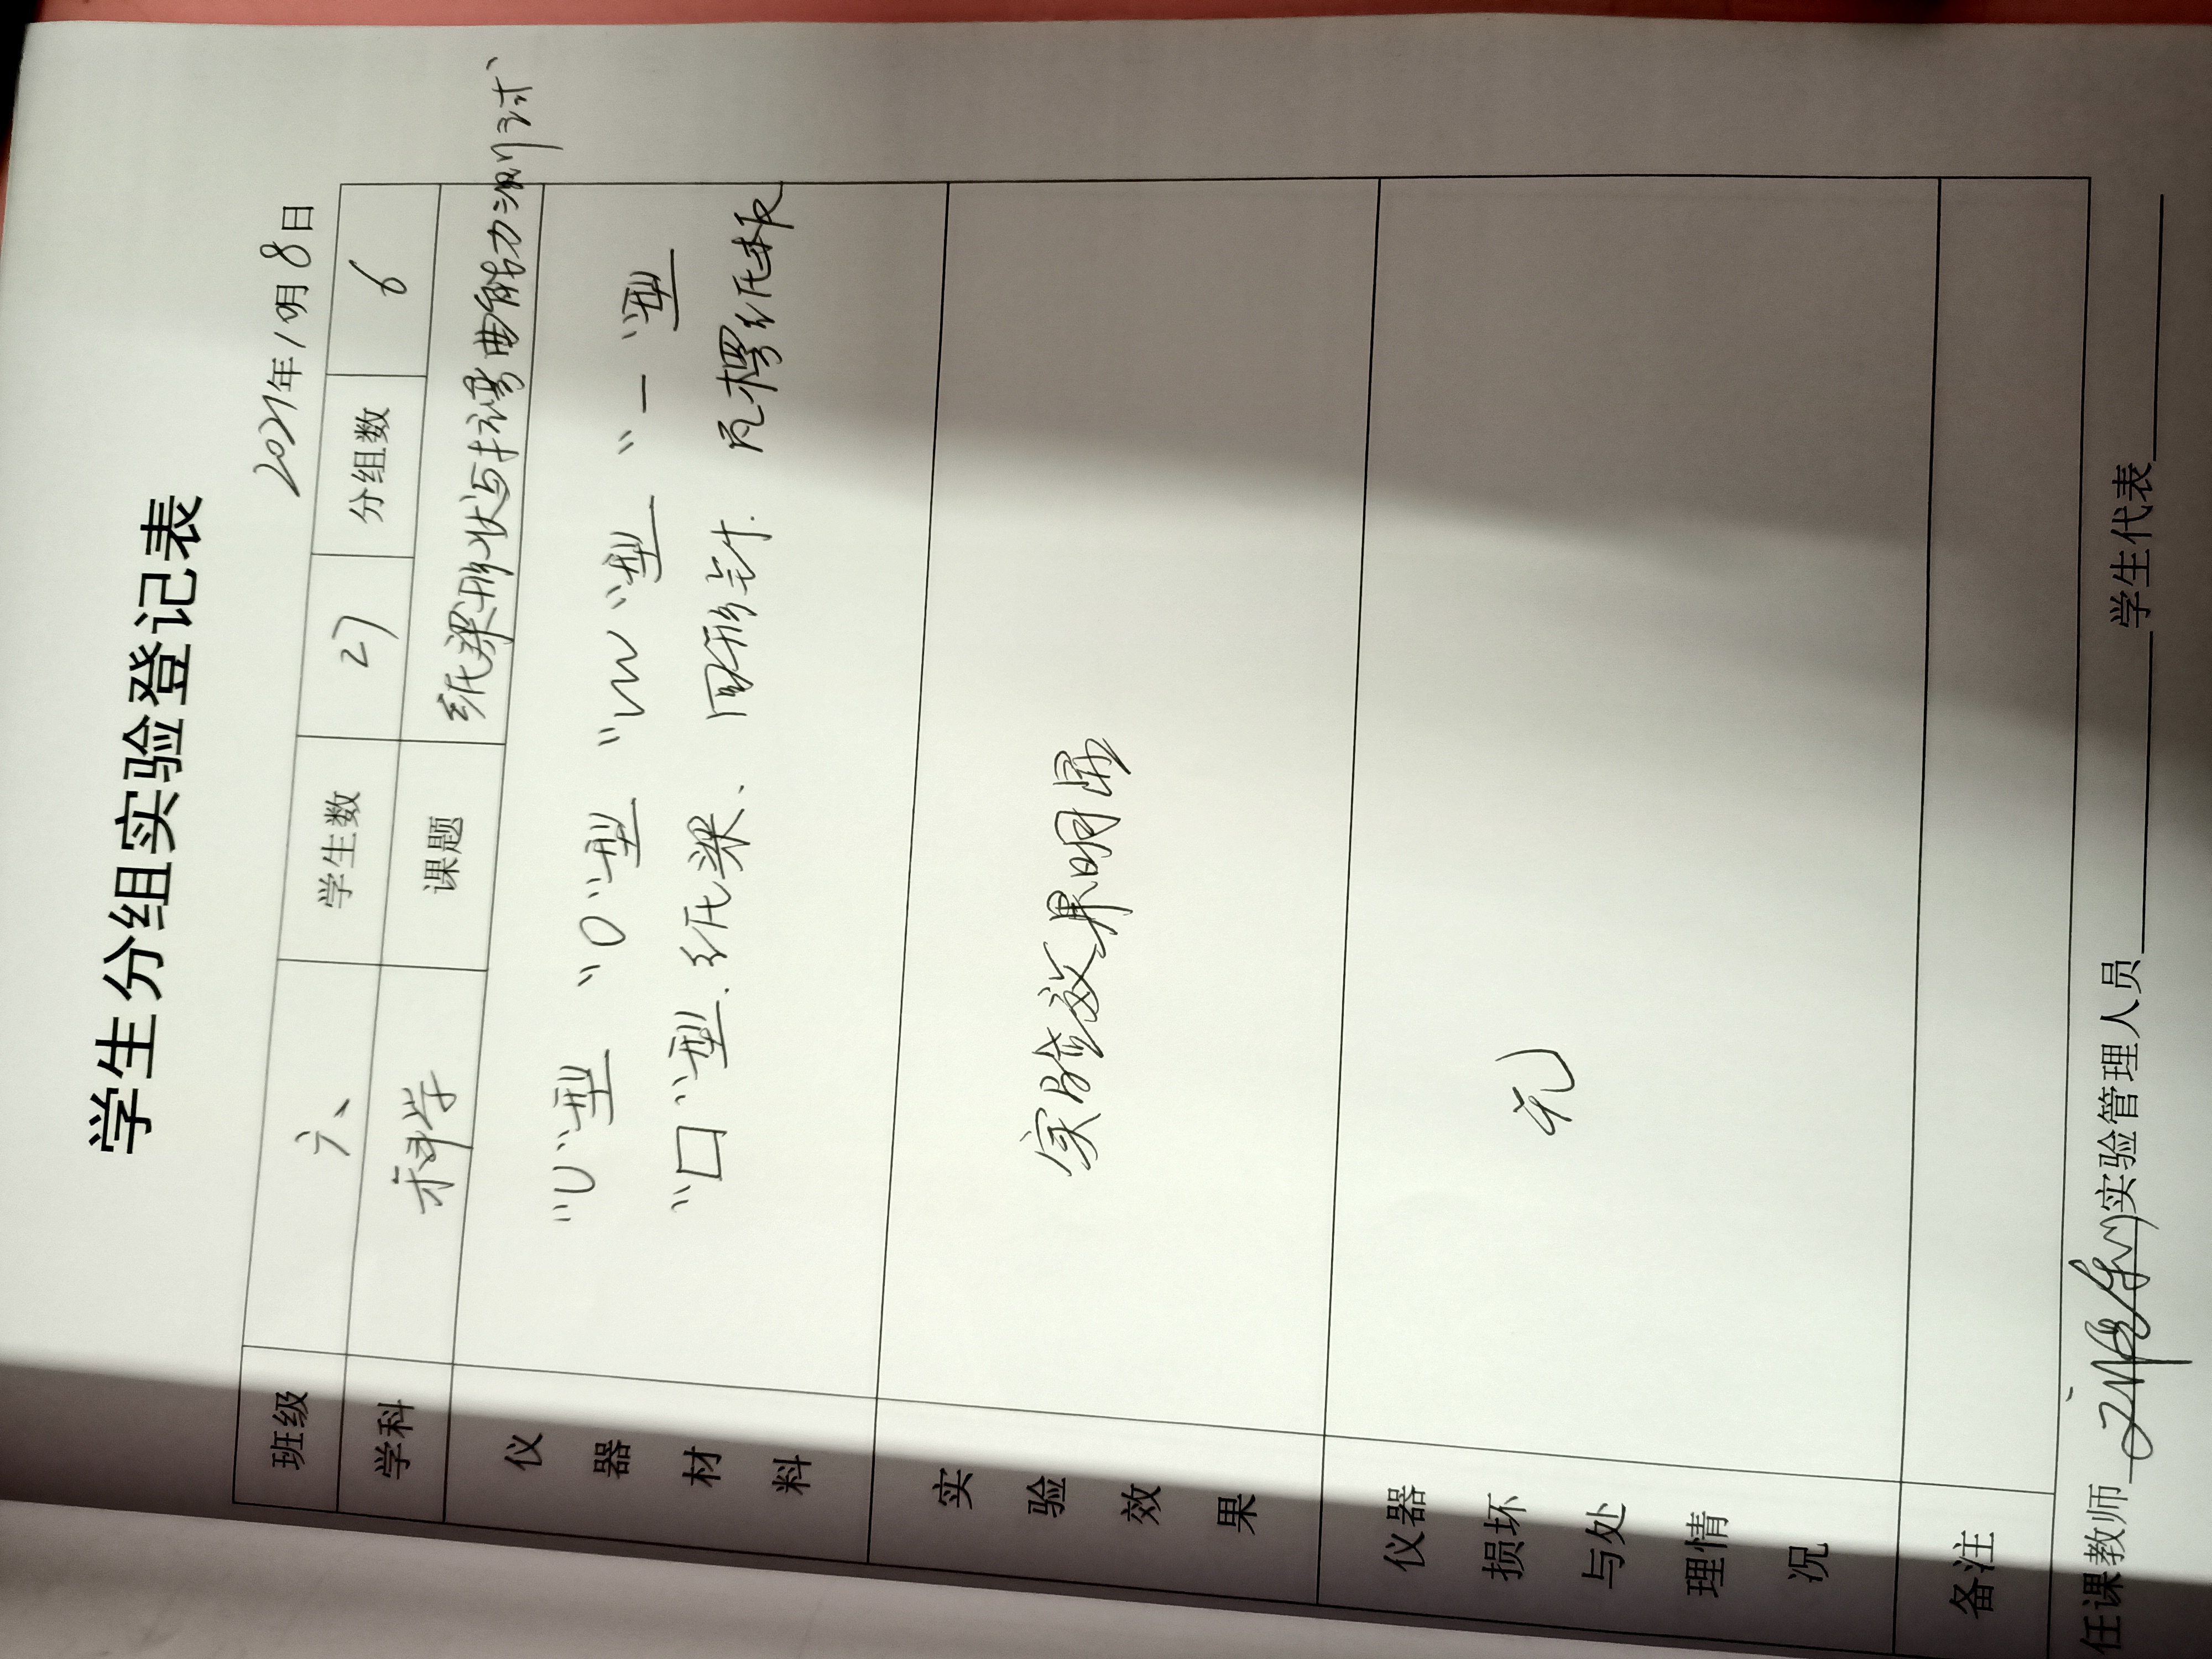 学生分组实验登记表
2021年11月8日
班级 六、 学生数 27 分组数 6
学科 科学 课题 纸梁形状与抗弯曲能力测试、
仪器材料 "U"型 "O"型 "W"型 "一"型
"口"型、纸梁、回形针、瓦楞纸板
实验效果 实验效果明显
仪器损坏与处理情况 无
备注
任课教师 实验管理人员 学生代表